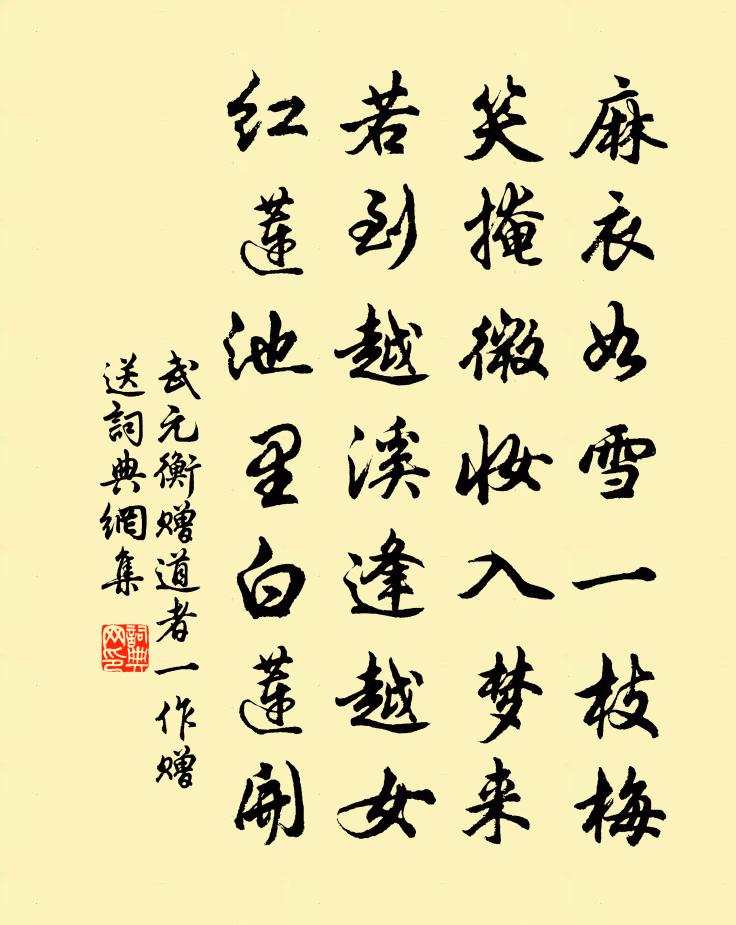 麻衣如雪一枝梅
笑掩微妆入梦来
若到越溪逢越女
红莲池里白莲開
武元衡赠道者一作赠
送詞典網集
詞典网印